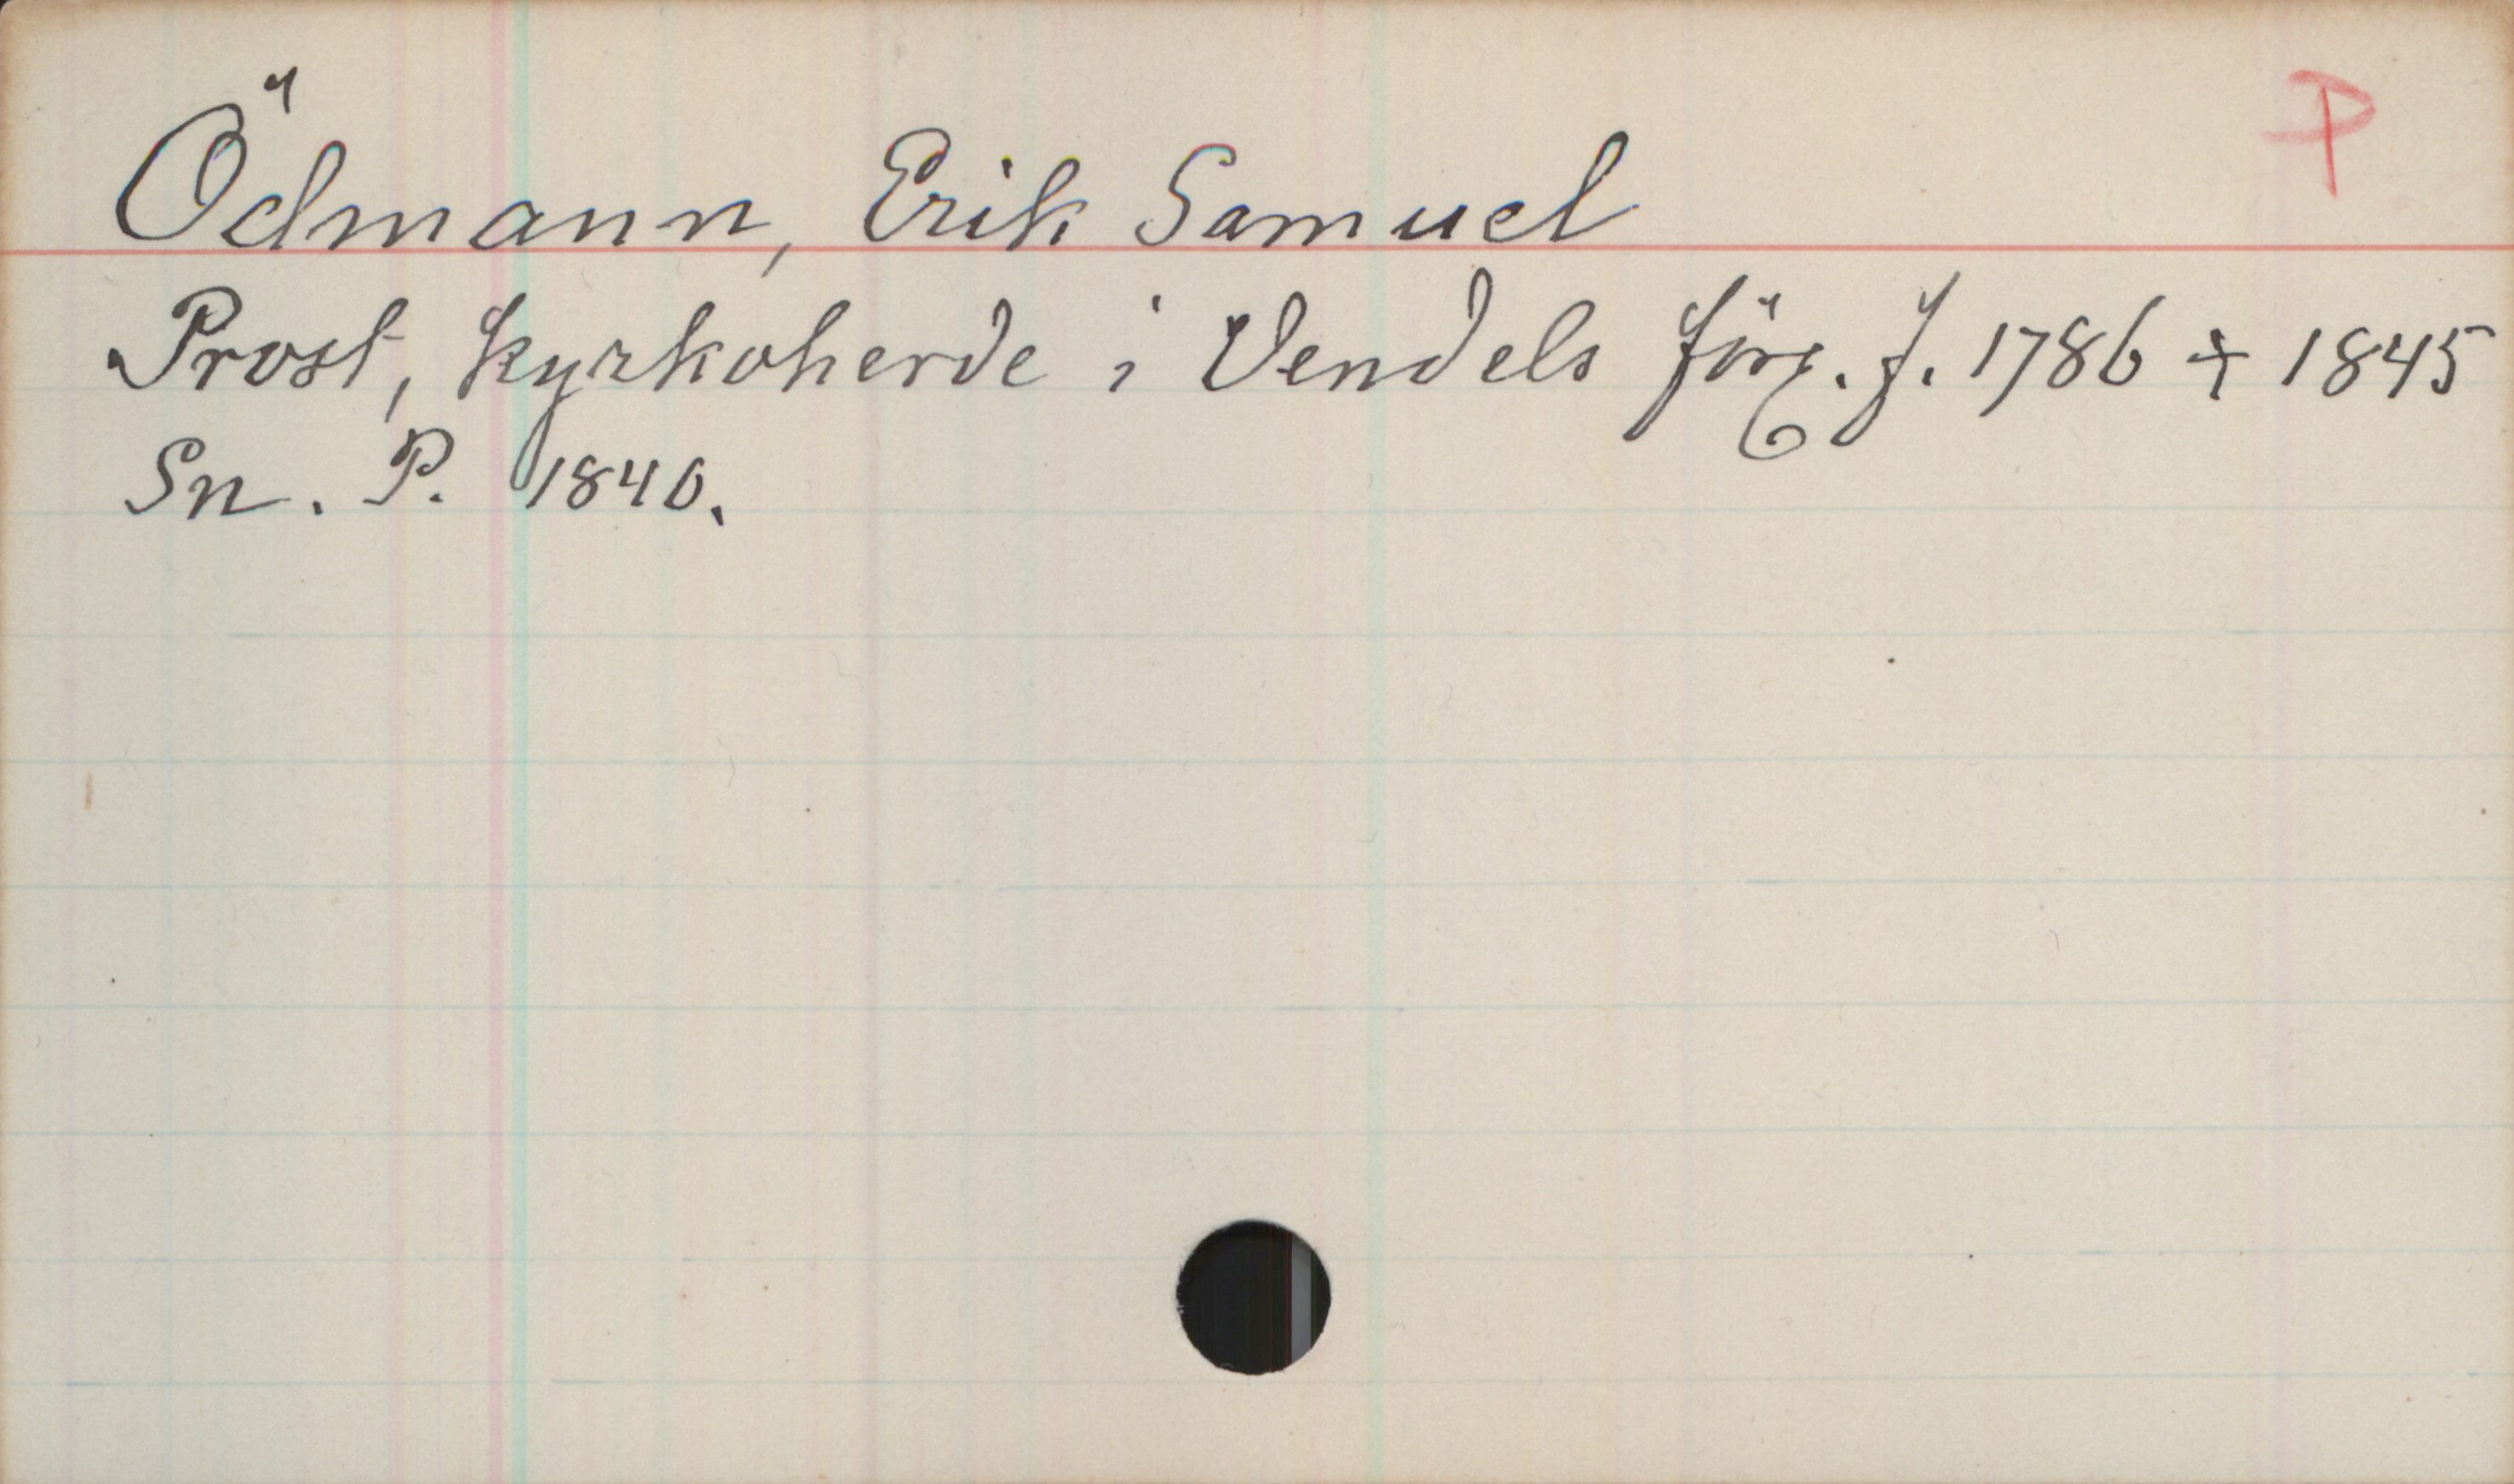 P
Ödmann, Erik Samuel
Prost, kyrkoherde i Vendels förs. f. 1786 † 1845
Sn. P. 1840.